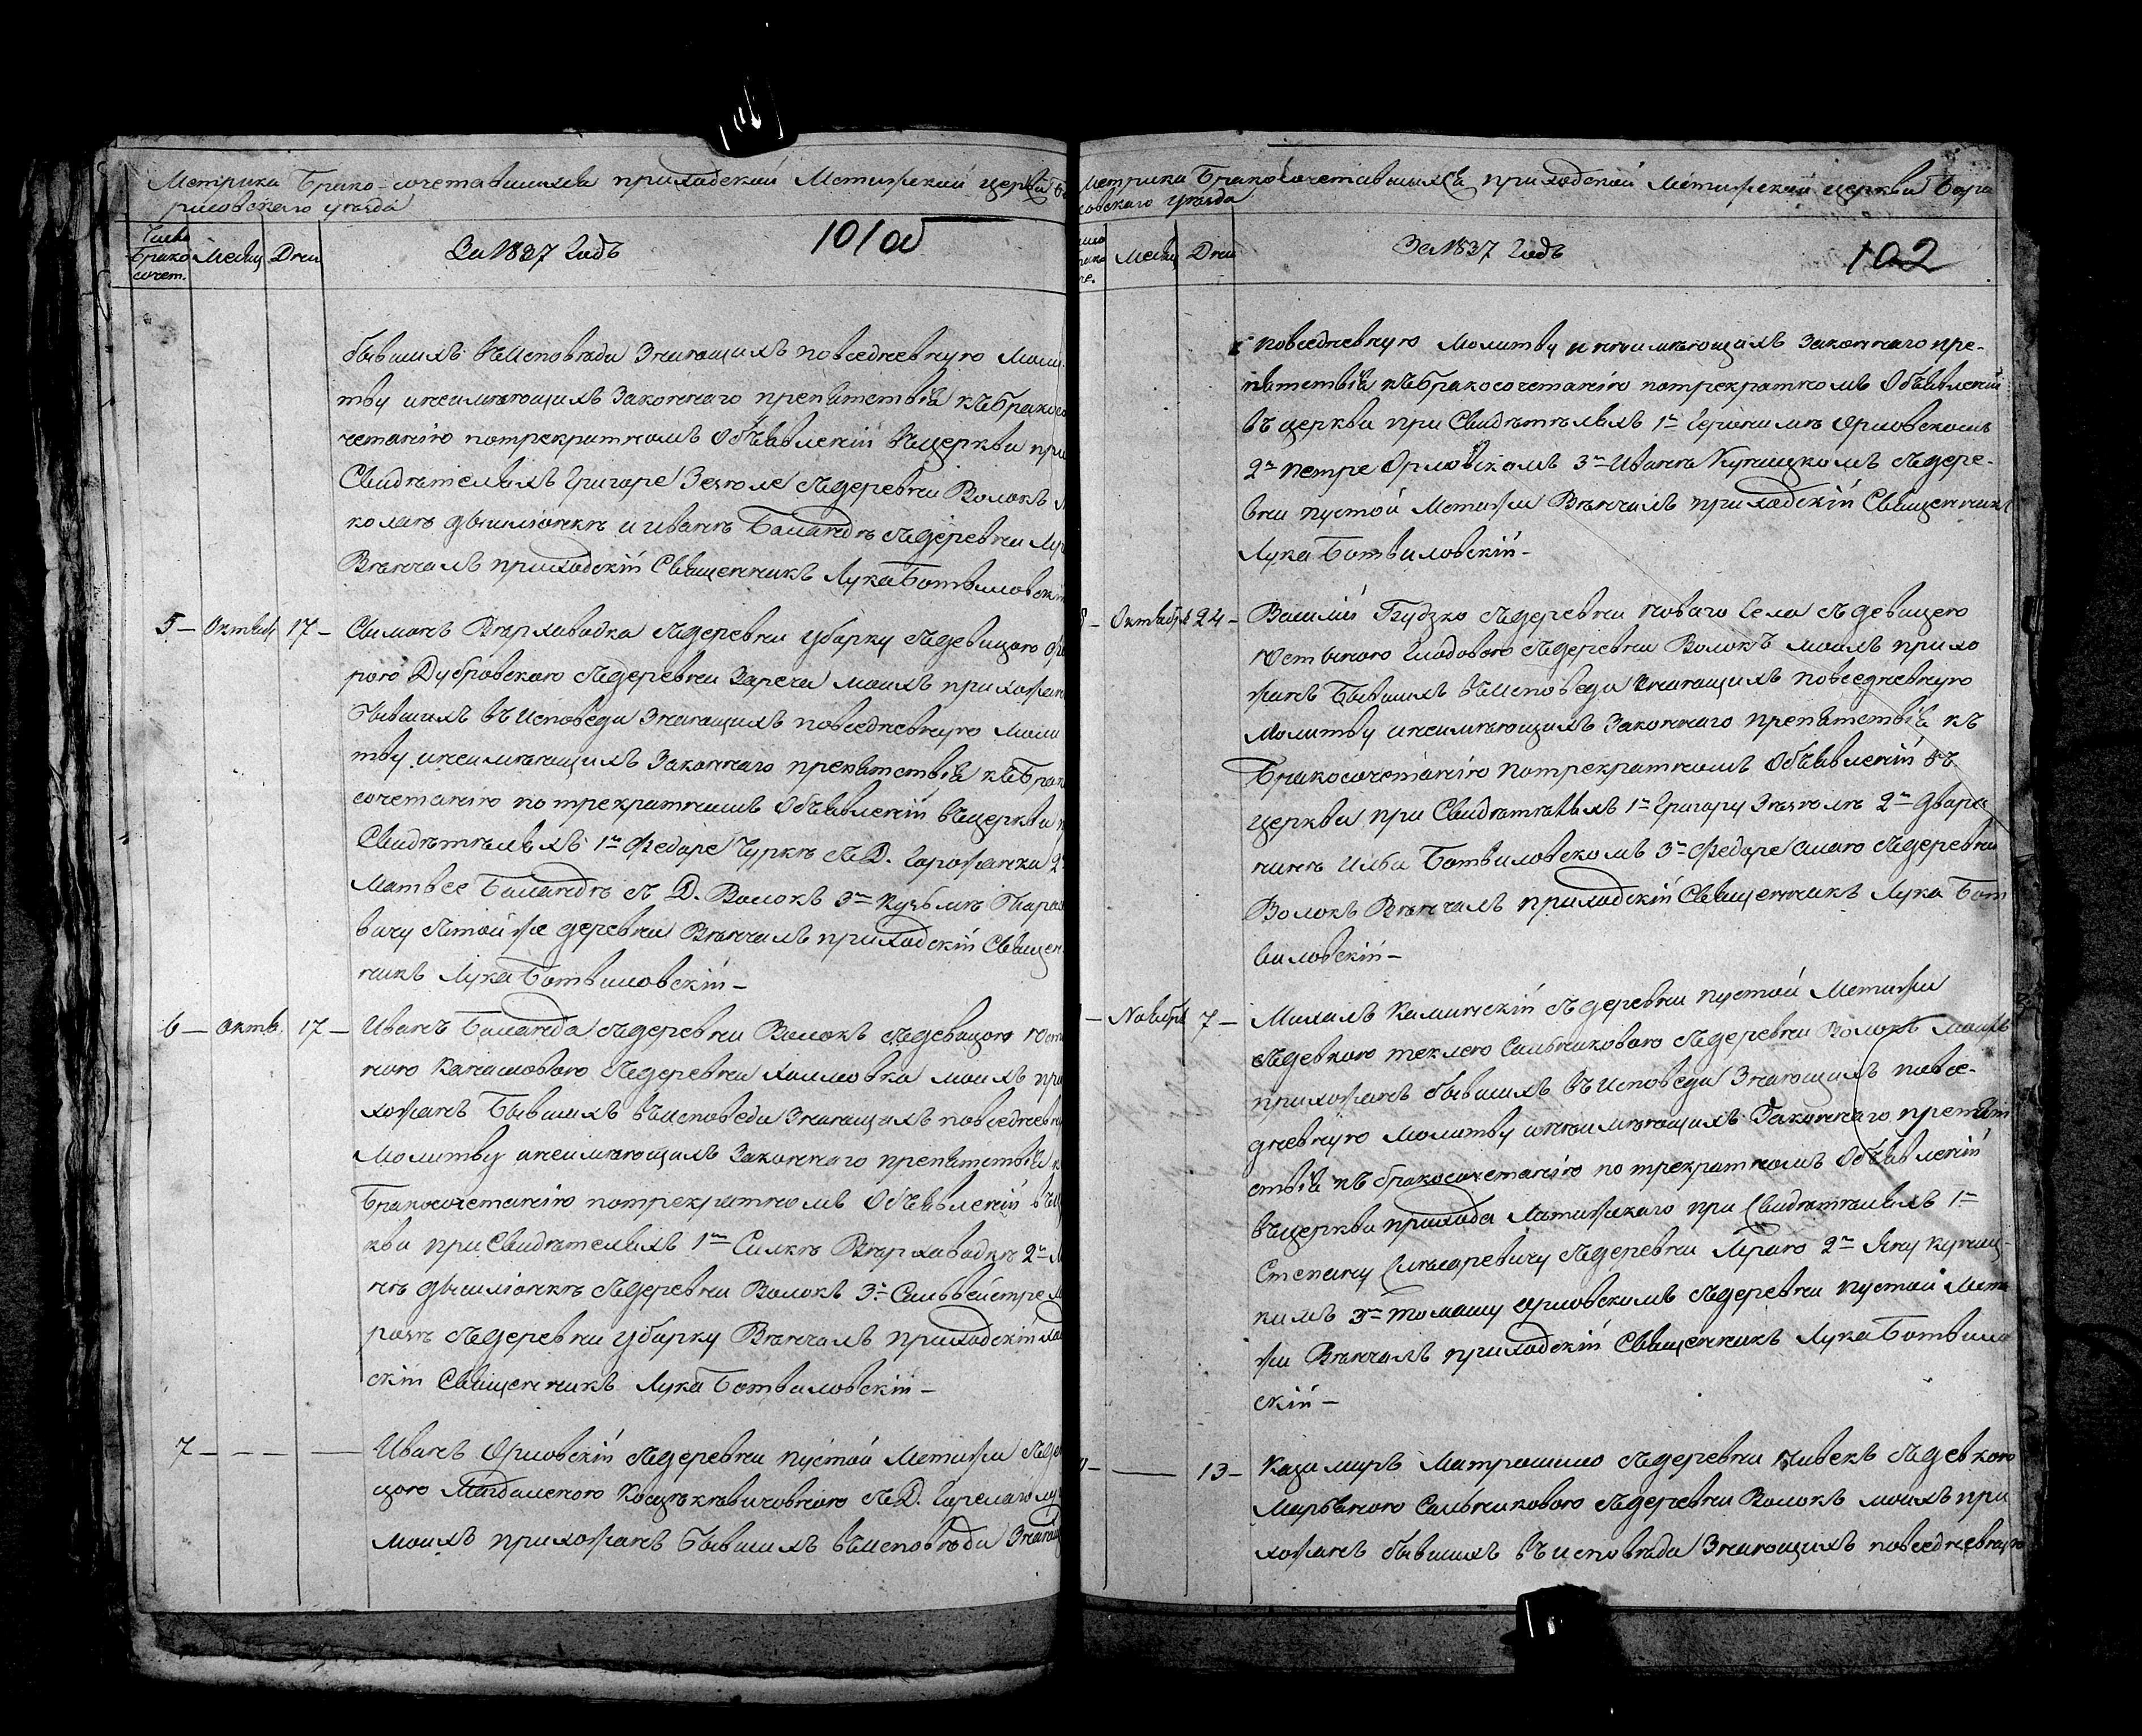 Метрика Брако-сочетавшихся приходской Метижской церкви Бо
рисовскаго уезда
Число Брако сочет.
Месяц
Дни
За 1837 Годъ
101 об
бывшихъ въ Исповѣди Знающихъ повседневную Моли
тву инеимѣющихъ Законнаго препятствія къ Бракосо
четанію потрекратномъ Объявленіи въ церкви при
Свидѣтеляхъ Григоре Зезюле съ деревни Волокъ
колаѣ дымионкѣ и Иванѣ Баландѣ съ деревни
Вѣнчалъ приходскій Священникъ Лука Ботвиловскій
5 — Октяб 17 — Симонъ Верховодка съ деревни Уборку съ девицою
рою Дубровскою съ деревни Заречя моихъ прихожан
Бывшихъ въ Исповеди Знающихъ повседневную Моли
тву инеимѣющихъ Законнаго препятствія къ Брако
сочетанію по трекратномъ Объявленіи въ церкви
Свидѣтѣляхъ 1ъ Федоре Чуркѣ съ Д. Горожанка 2
Матвее Баландѣ съ Д. Волокъ 3ъ Кузьмѣ Тара
вичу стой же деревни Вѣнчалъ приходскій Священ
никъ Лука Ботвиловскій —
6 — Октяб. 17 — Иванъ Баланда съ деревни Волокъ съ девицою Юсти
ною съ деревни Холмовка моихъ при
хожанъ Бывшихъ въ исповеди Знающихъ повседневн
Молитву инеимѣющихъ Законнаго препятствія к
Бракосочетанію потрекратномъ Объявленіи въ цер
кви при Свидѣтеляхъ 1ъ Симкѣ Верховодкѣ 2ъ
нѣ дымионкѣ съ деревни Волокъ 3ъ Сильвестре
розѣ съ деревни Уборку Вѣнчалъ приходскій
скій Священникъ Лука Ботвиловскій —
7 — — — — Иванъ Орловскій съ деревни пустой Метижи съ де
цою Магдаленою съ Д.
моихъ прихожанъ Бывшихъ въ Исповѣди Знаю
Метрика Бракосочетавшихся приходской Метижской церкви Бори
совскаго уезда
Месяц
Дни
За 1837 Годъ
102
повседневную Молитву инеимѣющихъ Законнаго пре-
пятствія къ Бракосочетанію потрекратномъ Объявленіи
въ церкви при Свидѣтѣляхъ 1ъ Орловскомъ
2ъ Петре Орловскомъ 3ъ Иванѣ Купицкомъ съ дере-
вни пустой Метижи Вѣнчалъ приходскій Священникъ
Лука Ботвиловскій —
8 — Октября 24 — Василий Гудзко съ деревни новаго Села съ девицею
Юстыною Гладовою съ деревни Волокъ моихъ прихо
жанъ Бывшихъ въ Исповеди Знающихъ повседневную
Молитву инеимѣющихъ Законнаго препятствія къ
Бракосочетанію потрекратномъ Объявленіи въ
церкви при Свидѣтѣляхъ 1ъ Григору Зезюлѣ 2ъ дворя
нинѣ Илья Ботвиловскомъ 3ъ Федоре съ деревни
Волокъ Вѣнчалъ приходскій Священникъ Лука Бот
виловскій —
— Ноября 7 — Михалъ Калинскій съ деревни пустой Метижи
съ девкою теклею Сильчиковою съ деревни Волокъ моихъ
прихожанъ бывшихъ въ Исповеди Знающихъ повсе-
дневную молитву инеимѣющихъ Законнаго препят
ствія къ бракосочетанію по трекратномъ Объявленіи
въ церкви прихода Метижскаго при Свидѣтѣляхъ 1ъ
Степану съ деревни 2ъ Яну Купиц-
кимъ 3ъ томашу Орловскомъ съ деревни пустой Мети
жи Вѣнчалъ приходскій Священникъ Лука Ботвилов
скій —
— — 13 — Казимиръ Матрошило съ деревни съ девкою
Марьяною Сильчиковою съ деревни Волокъ моихъ при
хожанъ бывшихъ въ исповѣди Знающихъ повседневную